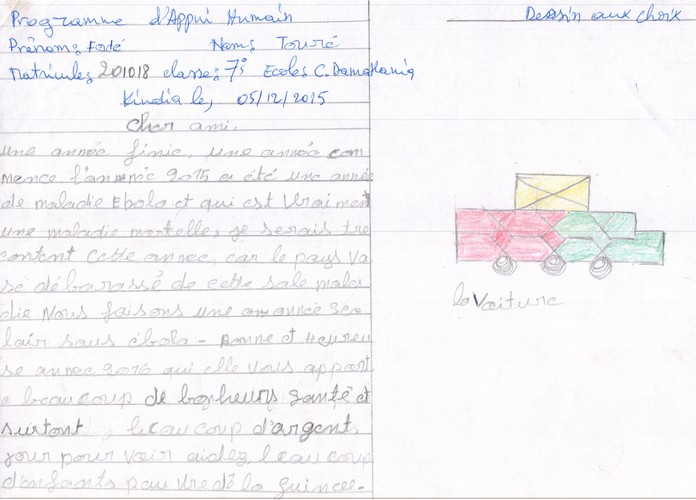 Programme d'Appui Humain
Dessin aux choix
Prénom: Fodé Nom: Touré
Matricule: 201018 classe: 7è Ecole: C. Damakania
Kindia le, 05/12/2015
Cher ami,
une année finie, une année com
mence l'année 2015 a été une année
de maladie Ebola et qui est vraiment
une maladie mortelle, je serais tre
content cette annee, car le pays va
se débarassé de cette sale mala
die Nous faisons une année sco
lair sans ébola - Bonne et Heureu
se annee 2016 qui elle vous appart
e beaucoup de bonheurs santé et
surtout beaucoup d'argents
pour pouvoir aidez beaucoup
d'enfants pauvre dé la guinée.-
la Voiture